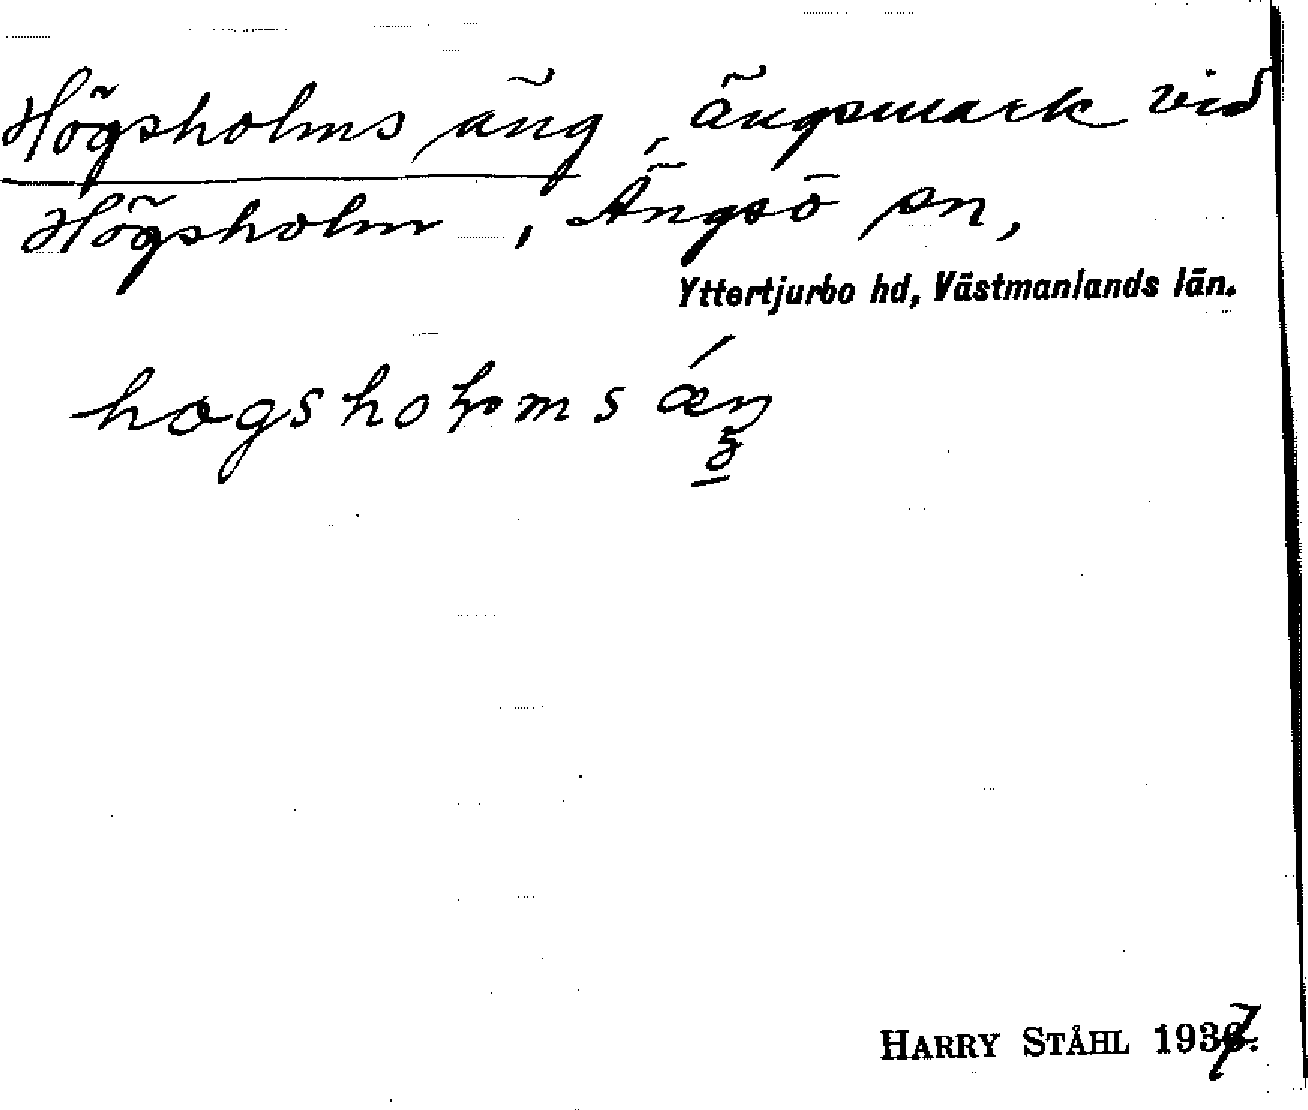 Högsholms äng, ängsmark vid
Högsholm, Ängsö sn,
Yttertjurbo hd, Västmanlands län.
hogsholmsǽŋ
HARRY STÅHL 1937.